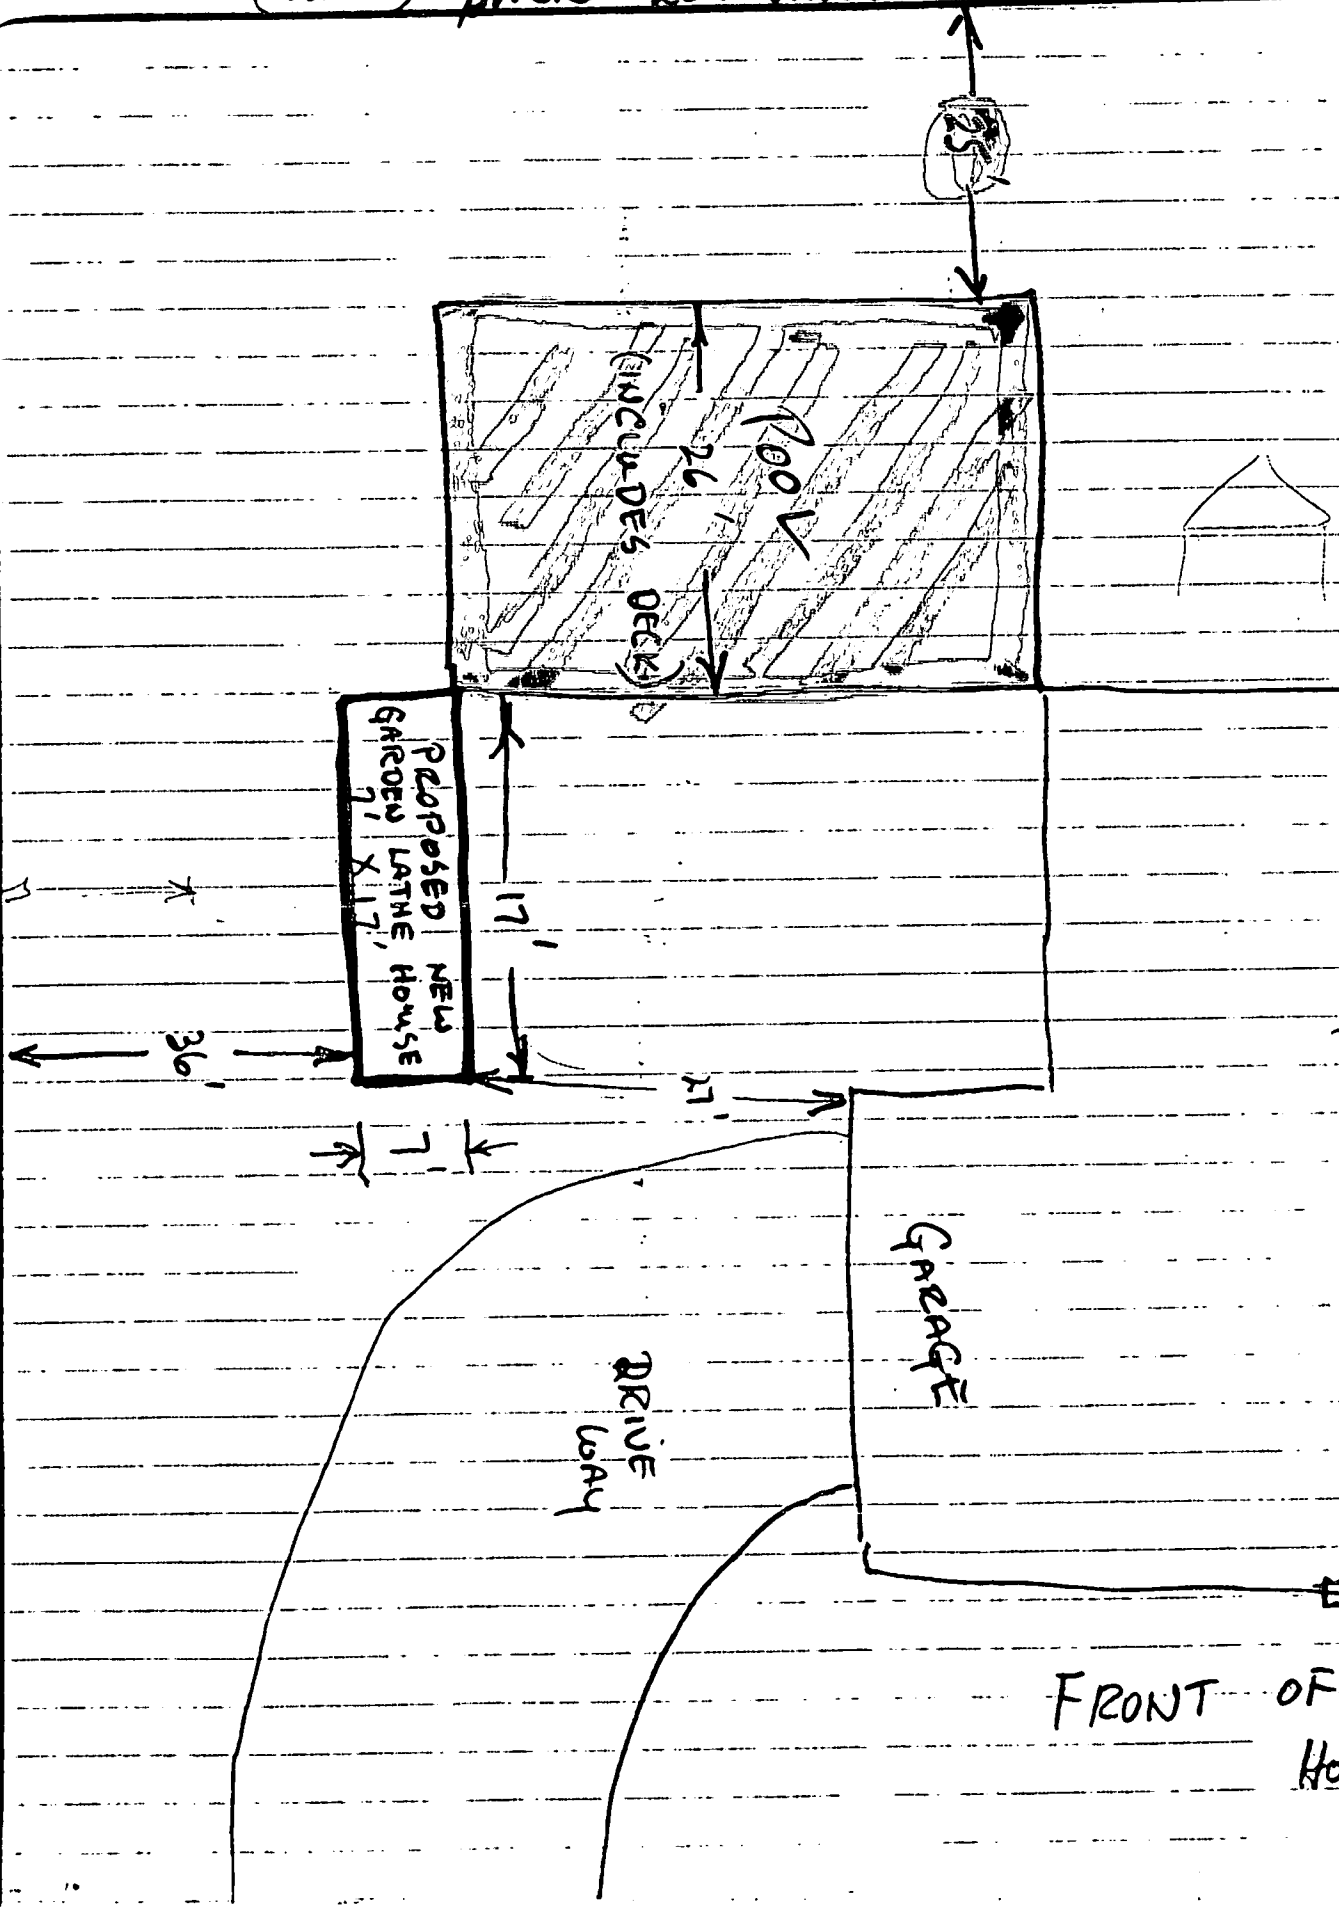 25'
POOL
26'
(INCLUDES DECK)
PROPOSED NEW
GARDEN LATHE HOUSE
7' X 17'
17'
36'
27'
7'
GARAGE
DRIVE
WAY
FRONT OF